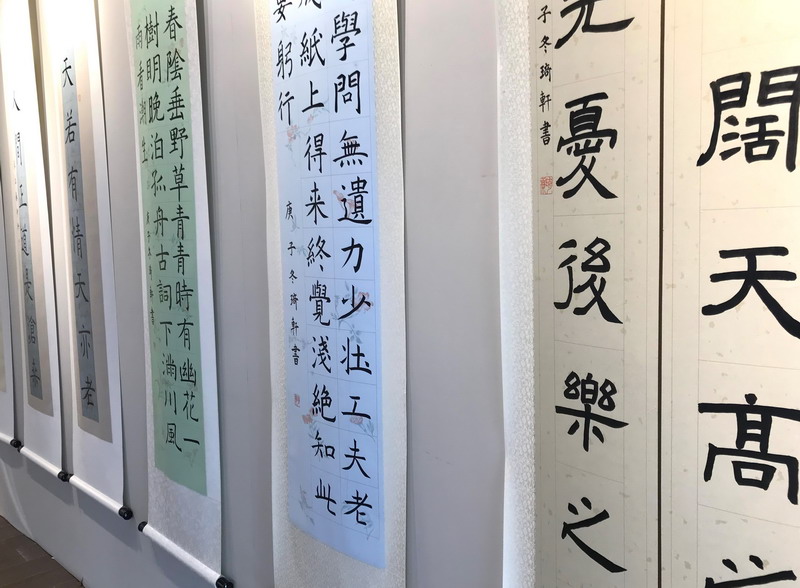 闊天高
先憂後樂之
子冬琦軒書
學問無遺力少壯工夫老
成紙上得来終覺淺絕知此
要躬行
庚子冬琦軒書
春陰垂野草青青時有幽花一
樹明晚泊孤舟古詞下滿川風
雨看潮生
庚子冬琦軒書
天若有情天亦老
人間正道是滄桑